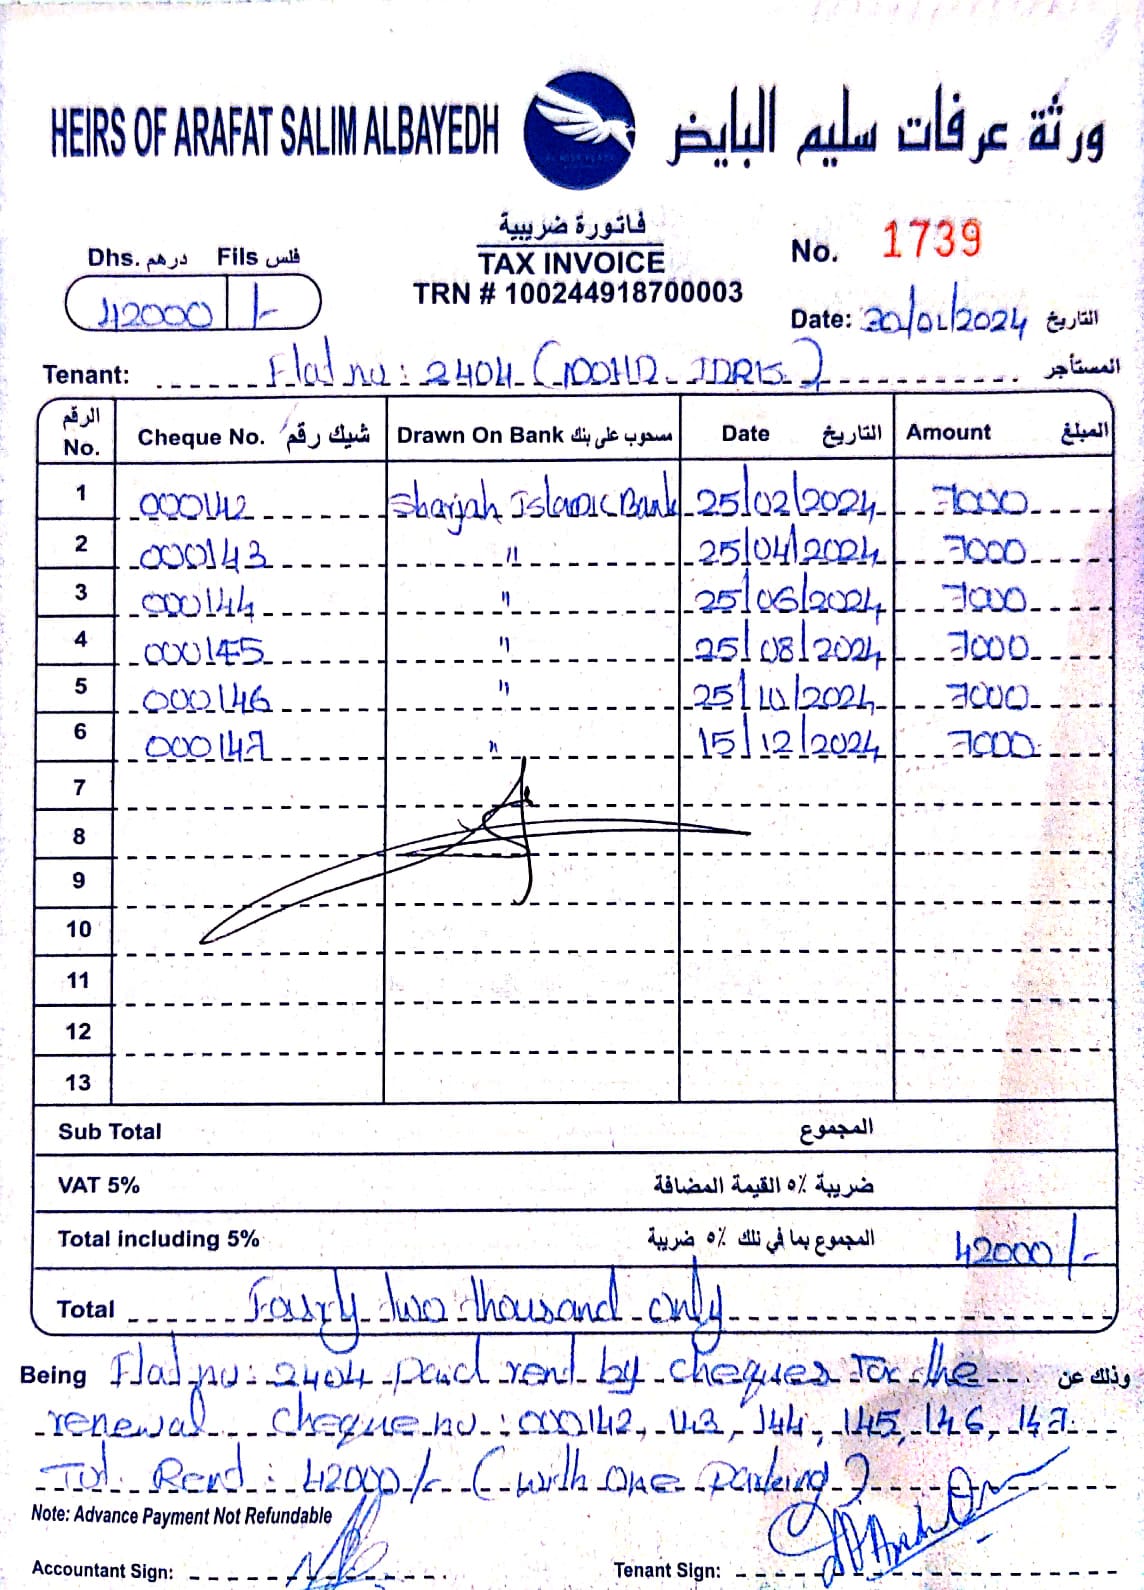 HEIRS OF ARAFAT SALIM ALBAYEDH ورثة عرفات سليم البايض
فاتورة ضريبية
TAX INVOICE
TRN # 100244918700003
No. 1739
Dhs. درهم Fils فلس
42000 /-
Date: 30/01/2024 التاريخ
Tenant: Flat no: 2404 (MOHD IDRIS) المستأجر
الرقم No. Cheque No. شيك رقم Drawn On Bank مسحوب على بنك Date التاريخ Amount المبلغ
1 000142 Sharjah Islamic Bank 25/02/2024 7000
2 000143 " 25/04/2024 7000
3 000144 " 25/06/2024 7000
4 000145 " 25/08/2024 7000
5 000146 " 25/10/2024 7000
6 000147 " 15/12/2024 7000
7
8
9
10
11
12
13
Sub Total المجموع
VAT 5% ضريبة ٥٪ القيمة المضافة
Total including 5% المجموع بما في ذلك ٥٪ ضريبة 42000/-
Total Fourty two thousand only
Being Flat no: 2404 paid rent by cheques For the وذلك عن
renewal cheque no: 000142, 143, 144, 145, 146, 147
Tot. Rent: 42000/- (with one parking)
Note: Advance Payment Not Refundable
Accountant Sign: Tenant Sign: